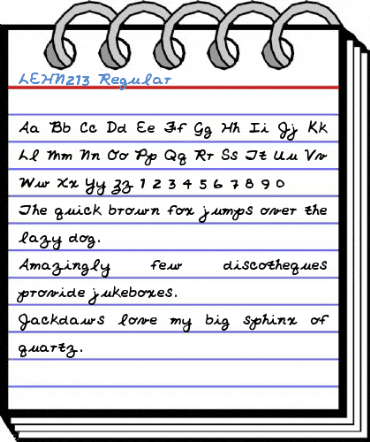 LEHN213 Regular
Aa Bb Cc Dd Ee Ff Gg Hh Ii Jj Kk
Ll Mm Nn Oo Pp Qq Rr Ss Tt Uu Vv
Ww Xx Yy Zz 1 2 3 4 5 6 7 8 9 0
The quick brown fox jumps over the
lazy dog.
Amazingly few discotheques
provide jukeboxes.
Jackdaws love my big sphinx of
quartz.